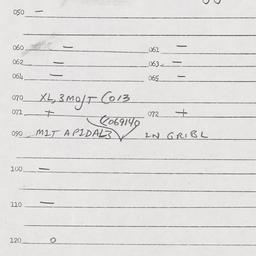 050 –
060 – 061 –
062 – 063 –
064 – 065 –
070 XL, 3MO/T CO13
071 + 072 +
CO69140
090 MIT APIDAL3 IN GRIBL
100 –
110 –
120 0